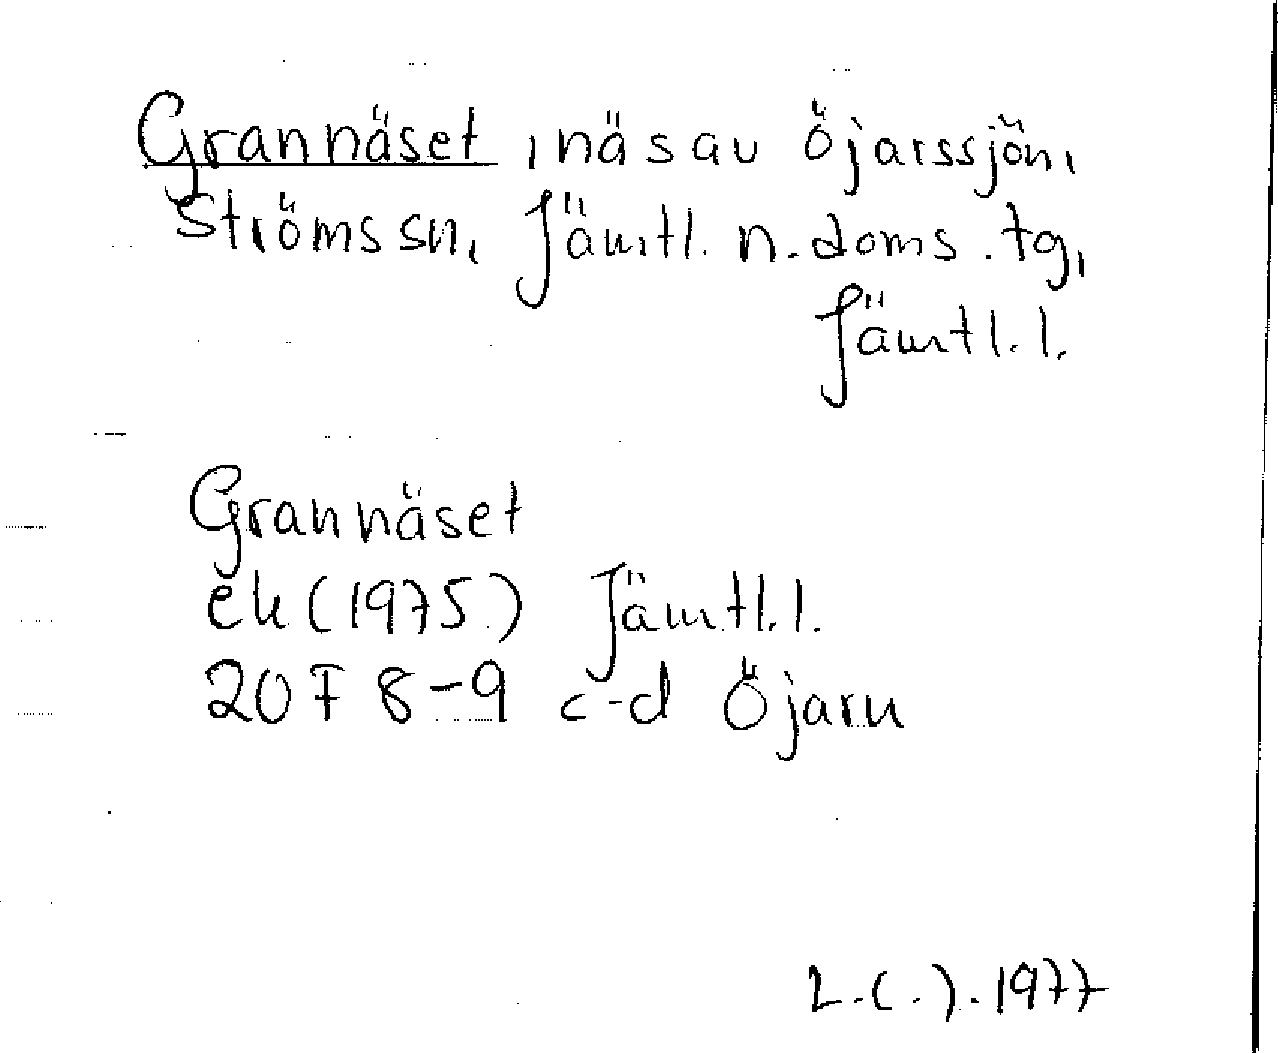 Grannäset, näs av Öjarssjön,
Ströms sn, Jämtl. n. doms. tg,
Jämtl. l.
Grannäset
ek (1975) Jämtl. l.
20 F 8-9 c-d Öjarn
L.(.). 1977